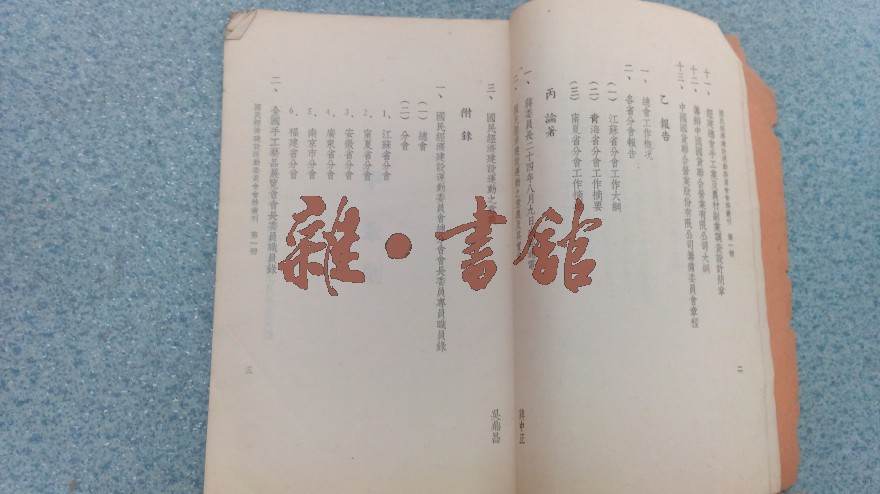 國民經濟建設運動委員會會務彙刊 第一冊
十一、經濟總會手工業及農村副業調查設計簡章
十二、籌辦中國國貨聯合營業有限公司大綱
十三、中國國貨聯合營業股份有限公司籌備委員會章程
乙 報告
一、總會工作概況
二、各省分會報告
(一) 江蘇省分會工作大綱
(二) 青海省分會工作摘要
(三) 甯夏省分會工作摘
丙 論著
二
一、蔣委員長二十四年八月九日 蔣中正
二、國民經濟建設運動之意義及其實
三、國民經濟建設運動之 吳鼎昌
附錄
一、國民經濟建設運動委員會總分會會長委員專員職員錄
(一) 總會
(二) 分會
1、江蘇省分會
2、甯夏省分會
3、安徽省分會
4、廣東省分會
5、南京市分會
6、福建省分會
二、全國手工藝品展覽會會長委員職員錄
國民經濟建設運動委員會會務彙刊 第一冊
三
雜·書館